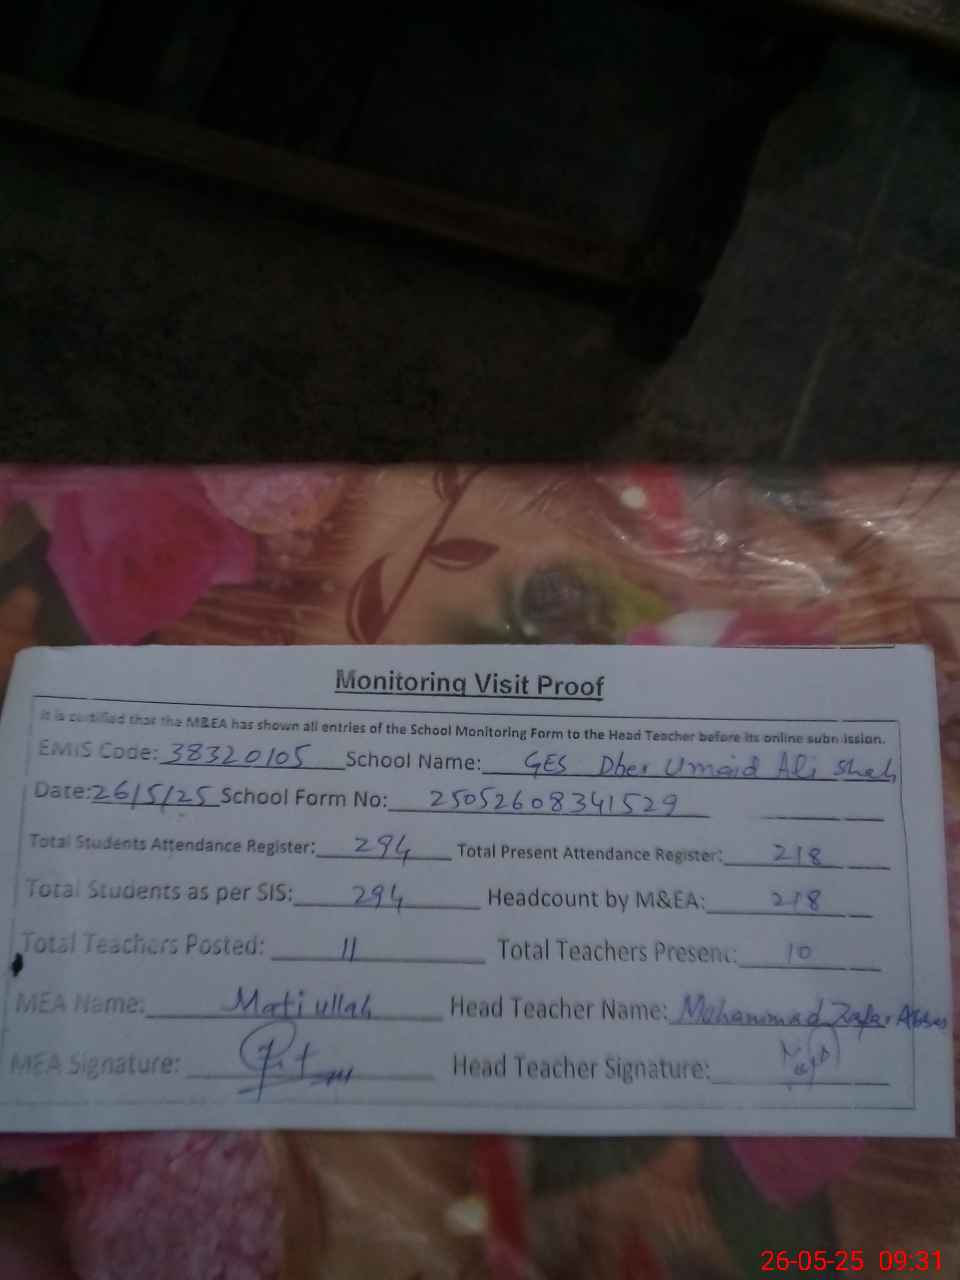 Monitoring Visit Proof
It is certified that the M&EA has shown all entries of the School Monitoring Form to the Head Teacher before its online submission.
EMIS Code: 38320105 School Name: GES Dher Umaid Ali Shah
Date: 26/5/25 School Form No: 25052608341529
Total Students Attendance Register: 294 Total Present Attendance Register: 218
Total Students as per SIS: 294 Headcount by M&EA: 218
Total Teachers Posted: 11 Total Teachers Present: 10
MEA Name: Mati ullah Head Teacher Name: Mohammad Zafar Abbas
MEA Signature: Head Teacher Signature:
26-05-25 09:31